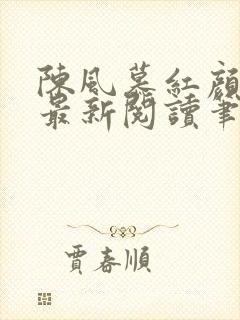 陳風慕紅顏
最新閱讀筆
賈春順